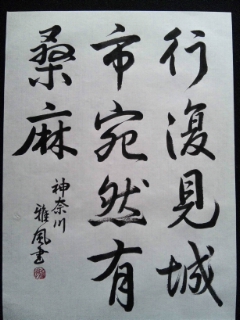 行復見城
市宛然有
桑麻
神奈川
雅風書